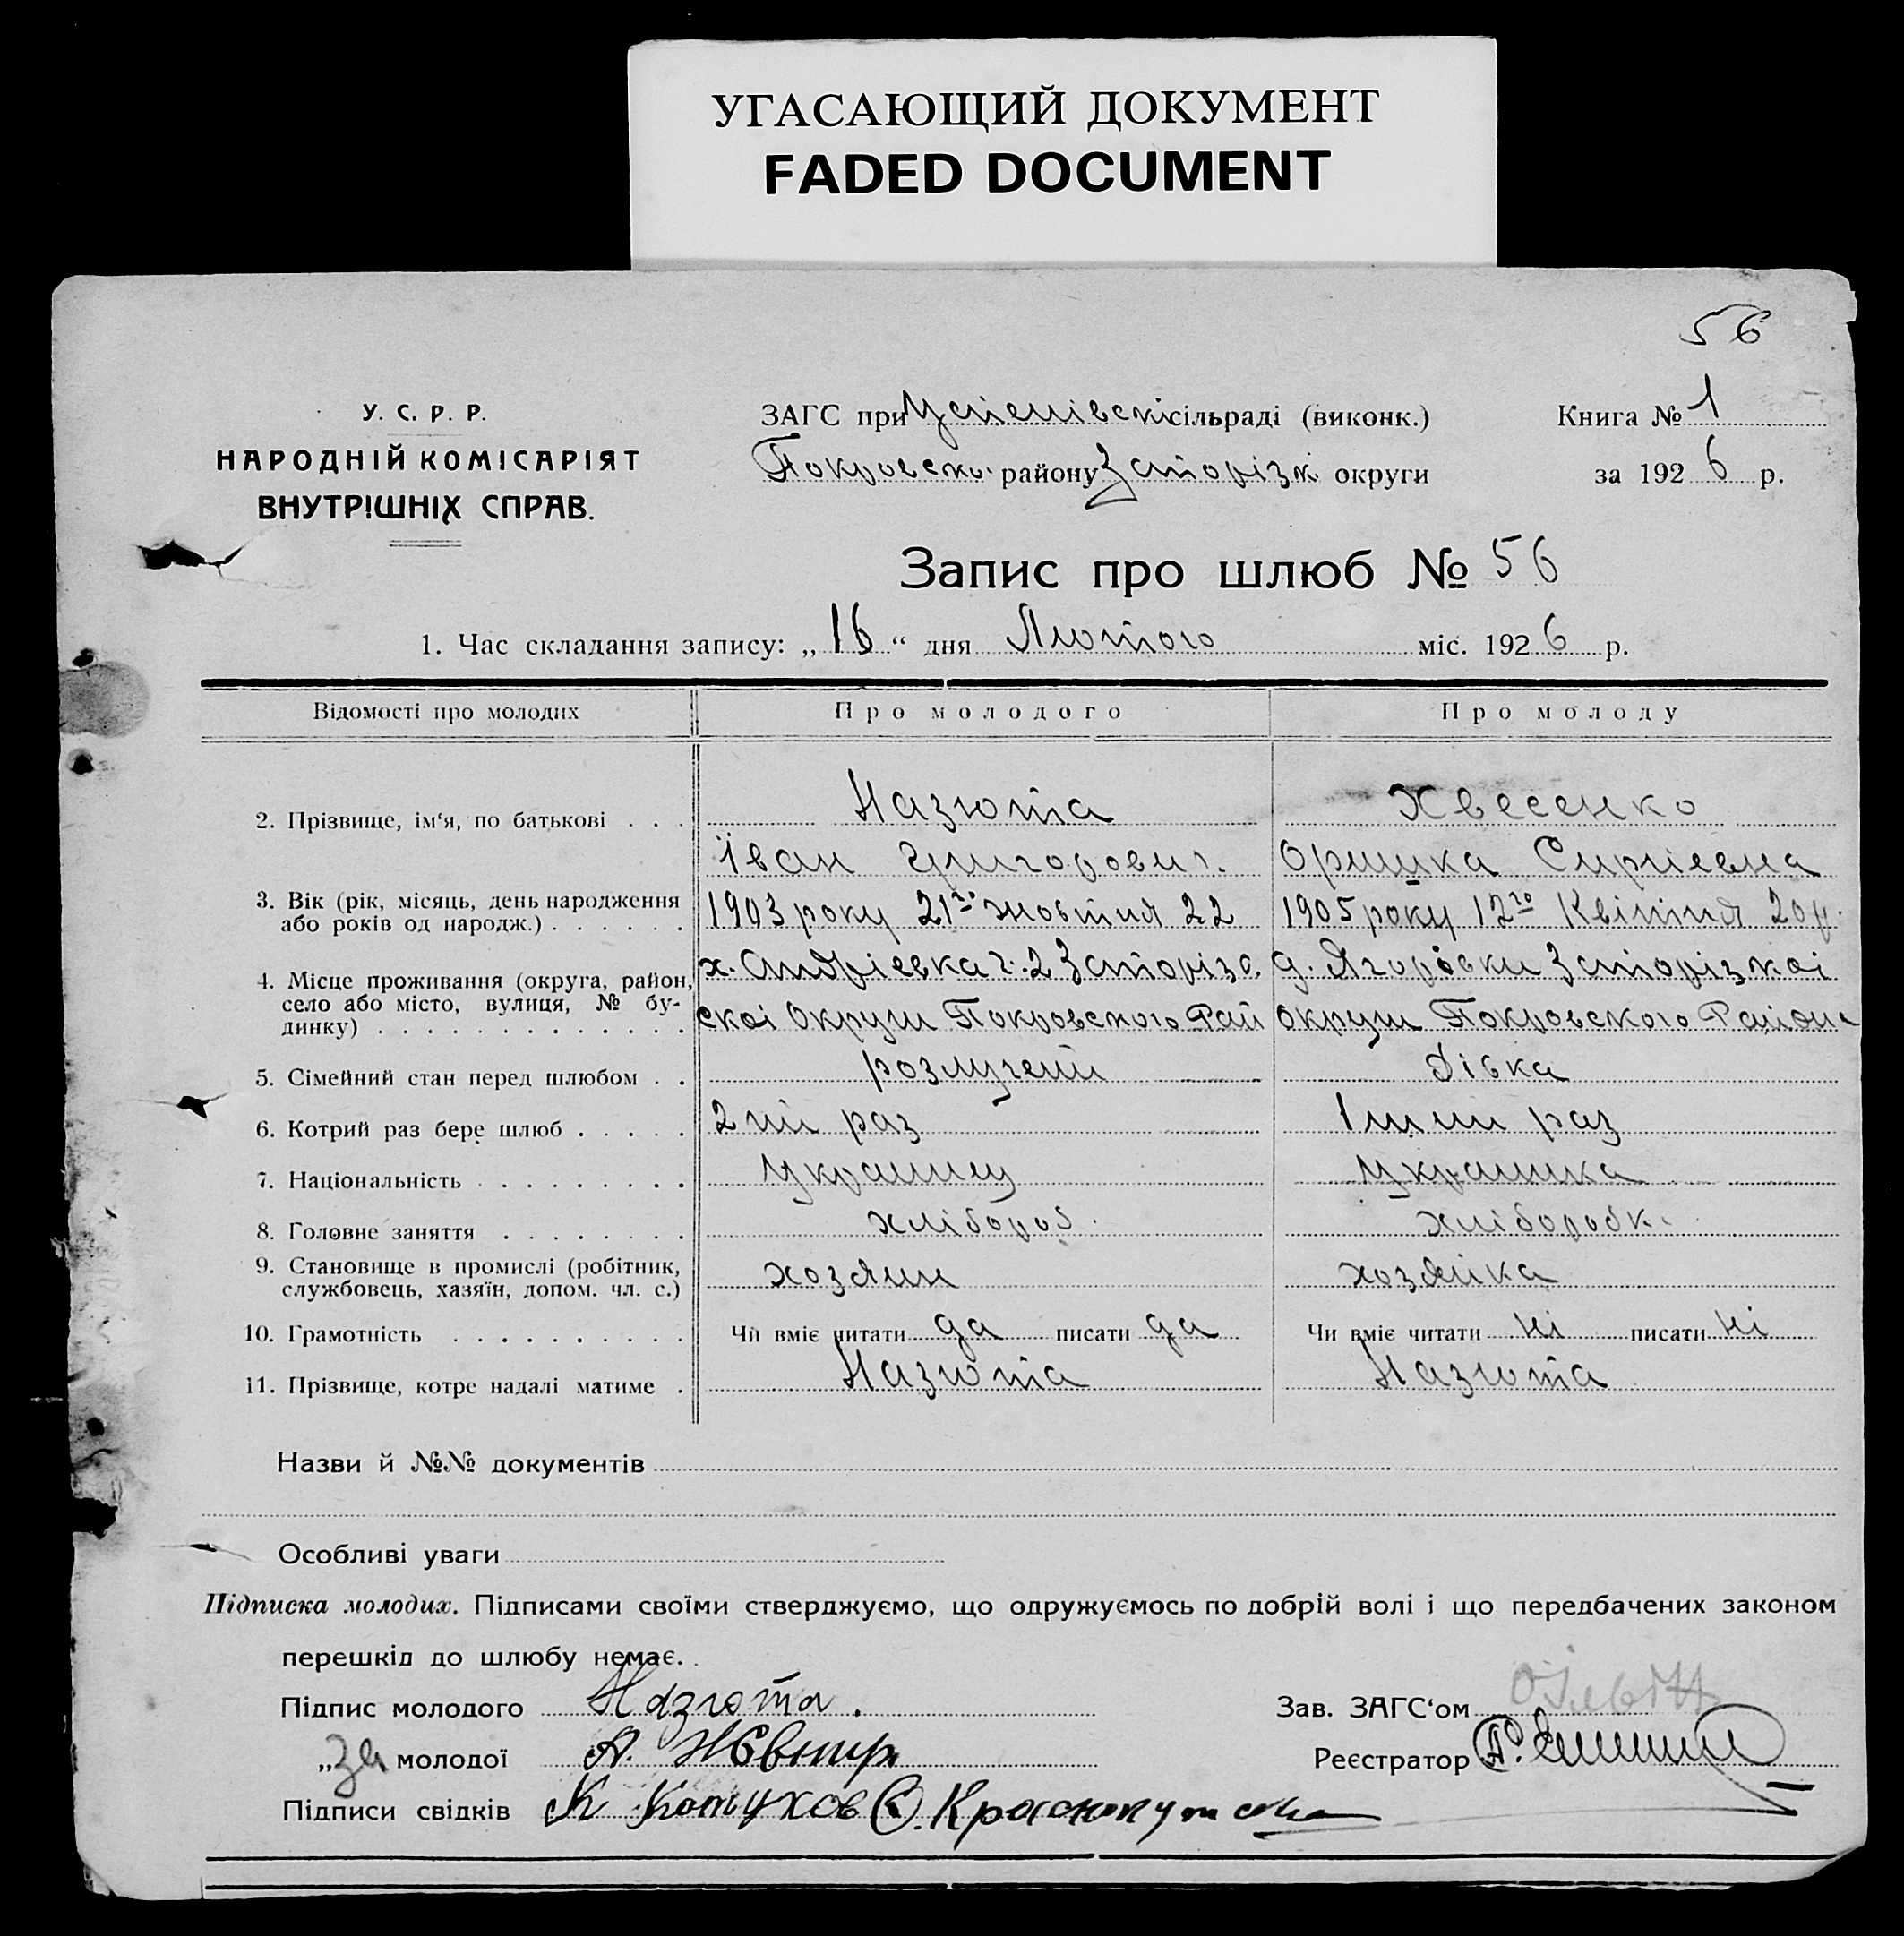 УГАСАЮЩИЙ ДОКУМЕНТ
FADED DOCUMENT
56
У. С. Р. Р.
НАРОДНІЙ КОМІСАРІЯТ
ВНУТРІШНІХ СПРАВ.
ЗАГС при Успенівскі сільраді (виконк.)
Покровско району Запорізк округи
Книга № 1
за 1926 р.
Запис про шлюб № 56
1. Час складання запису: „16“ дня Лютого міс. 1926 р.
Відомості про молодих Про молодого Про молоду
2. Прізвище, ім‘я, по батькові . . . Назюта Хвесенко
Іван Григорович. Оришка Сиргіевна
3. Вік (рік, місяць, день народження 1903 року 21го жовтня 22 1905 року 12го Квітня 20 р.
або років од народж.) . . . . . .
4. Місце проживання (округа, район, х. Андріевка ч. 2 Запорізс. д. Ягорівки Запорізкоі
село або місто, вулиця, № бу- скоі Округи Покровского Рай округи Покровского Района
динку) . . . . . . . . . . . . . .
5. Сімейний стан перед шлюбом . . розлучений Дівка
6. Котрий раз бере шлюб . . . . . 2 ий раз 1 ший раз
7. Національність . . . . . . . . . Украинец Украинка
8. Головне заняття . . . . . . . . хлібороб. хліборобк.
9. Становище в промислі (робітник, хозяин хозяйка
службовець, хазяїн, допом. чл. с.)
10. Грамотність . . . . . . . . . . Чи вміє читати да писати да Чи вміє читати ні писати ні
11. Прізвище, котре надалі матиме . Назюта Назюта
Назви й №№ документів
Особливі уваги
Підписка молодих. Підписами своїми стверджуємо, що одружуємось по добрій волі і що передбачених законом
перешкід до шлюбу немає.
Підпис молодого Назюта. Зав. ЗАГС‘ом
„ за молодої А. Реєстратор
Підписи свідків К Котухов С. Краснокутска